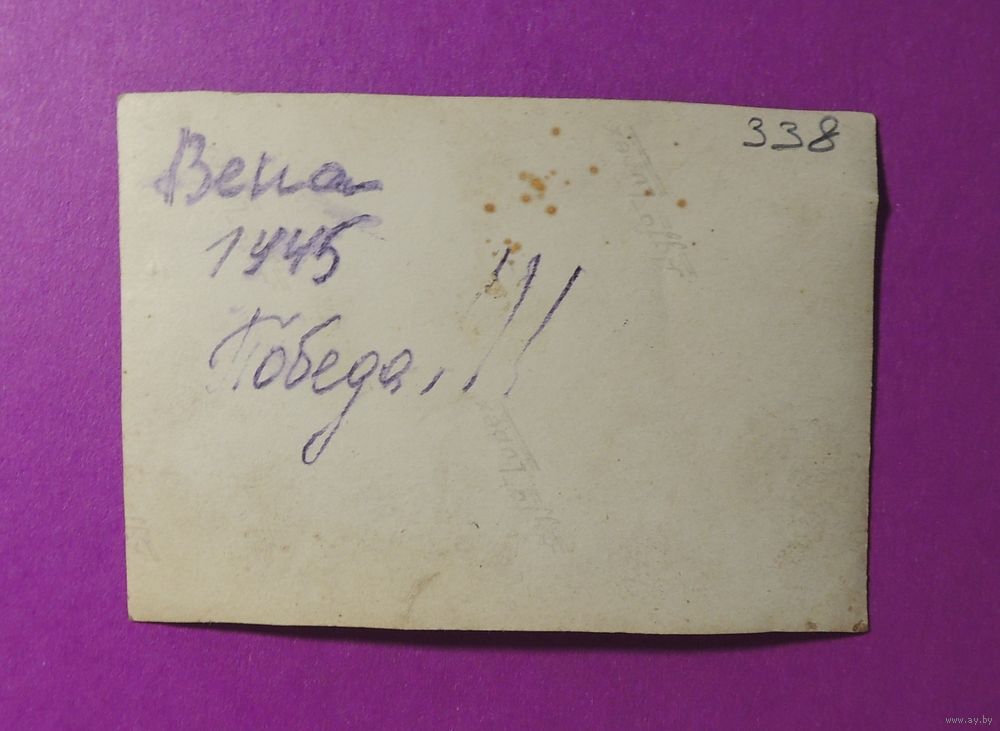 338
Вена
1945
Победа!!!
www.ay.by